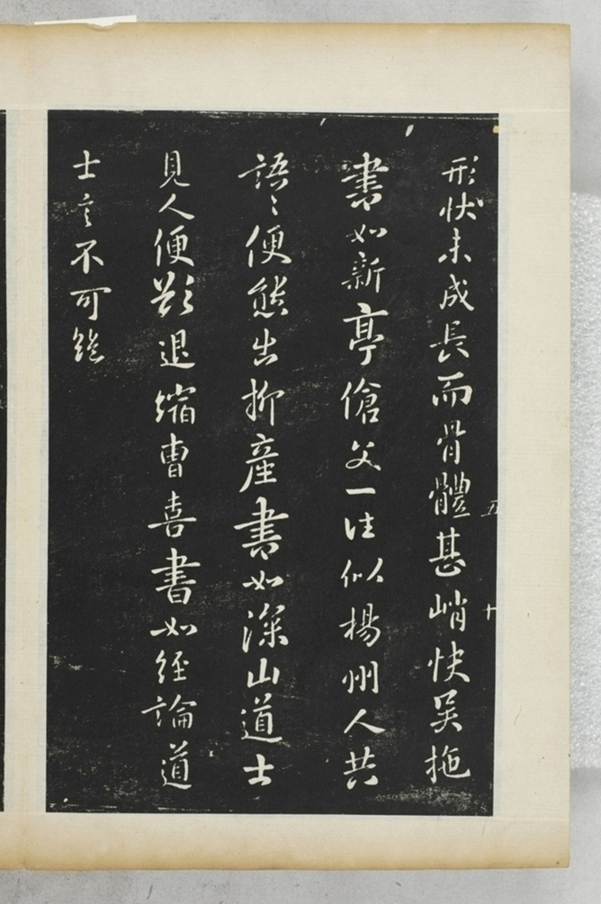 形狀未成長而骨體甚峭快吳拖
書如新亭傖父一往似楊州人共
語〻便態出柳產書如深山道士
見人便欲退縮曹喜書如經論道
士言不可絕
五
十